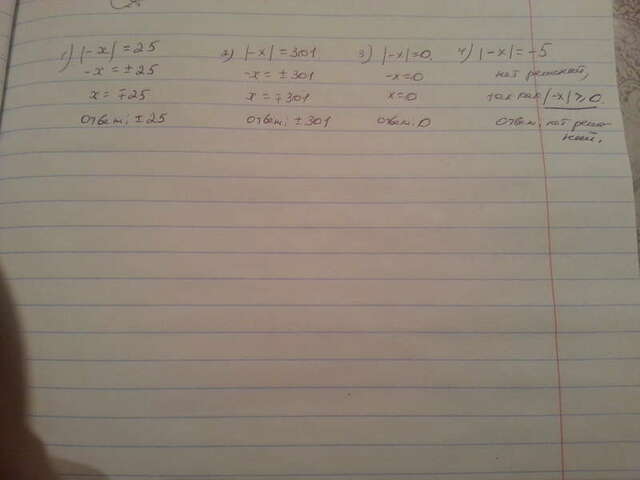 1) |-x| = 25
-x = ±25
x = ∓25
ответ: ±25
2) |-x| = 301
-x = ±301
x = ∓301
ответ: ±301
3) |-x|=0
-x=0
x=0
ответ: 0
4) |-x| = -5
нет решений,
так как |-x|⩾0.
Ответ: нет реше-
ний.